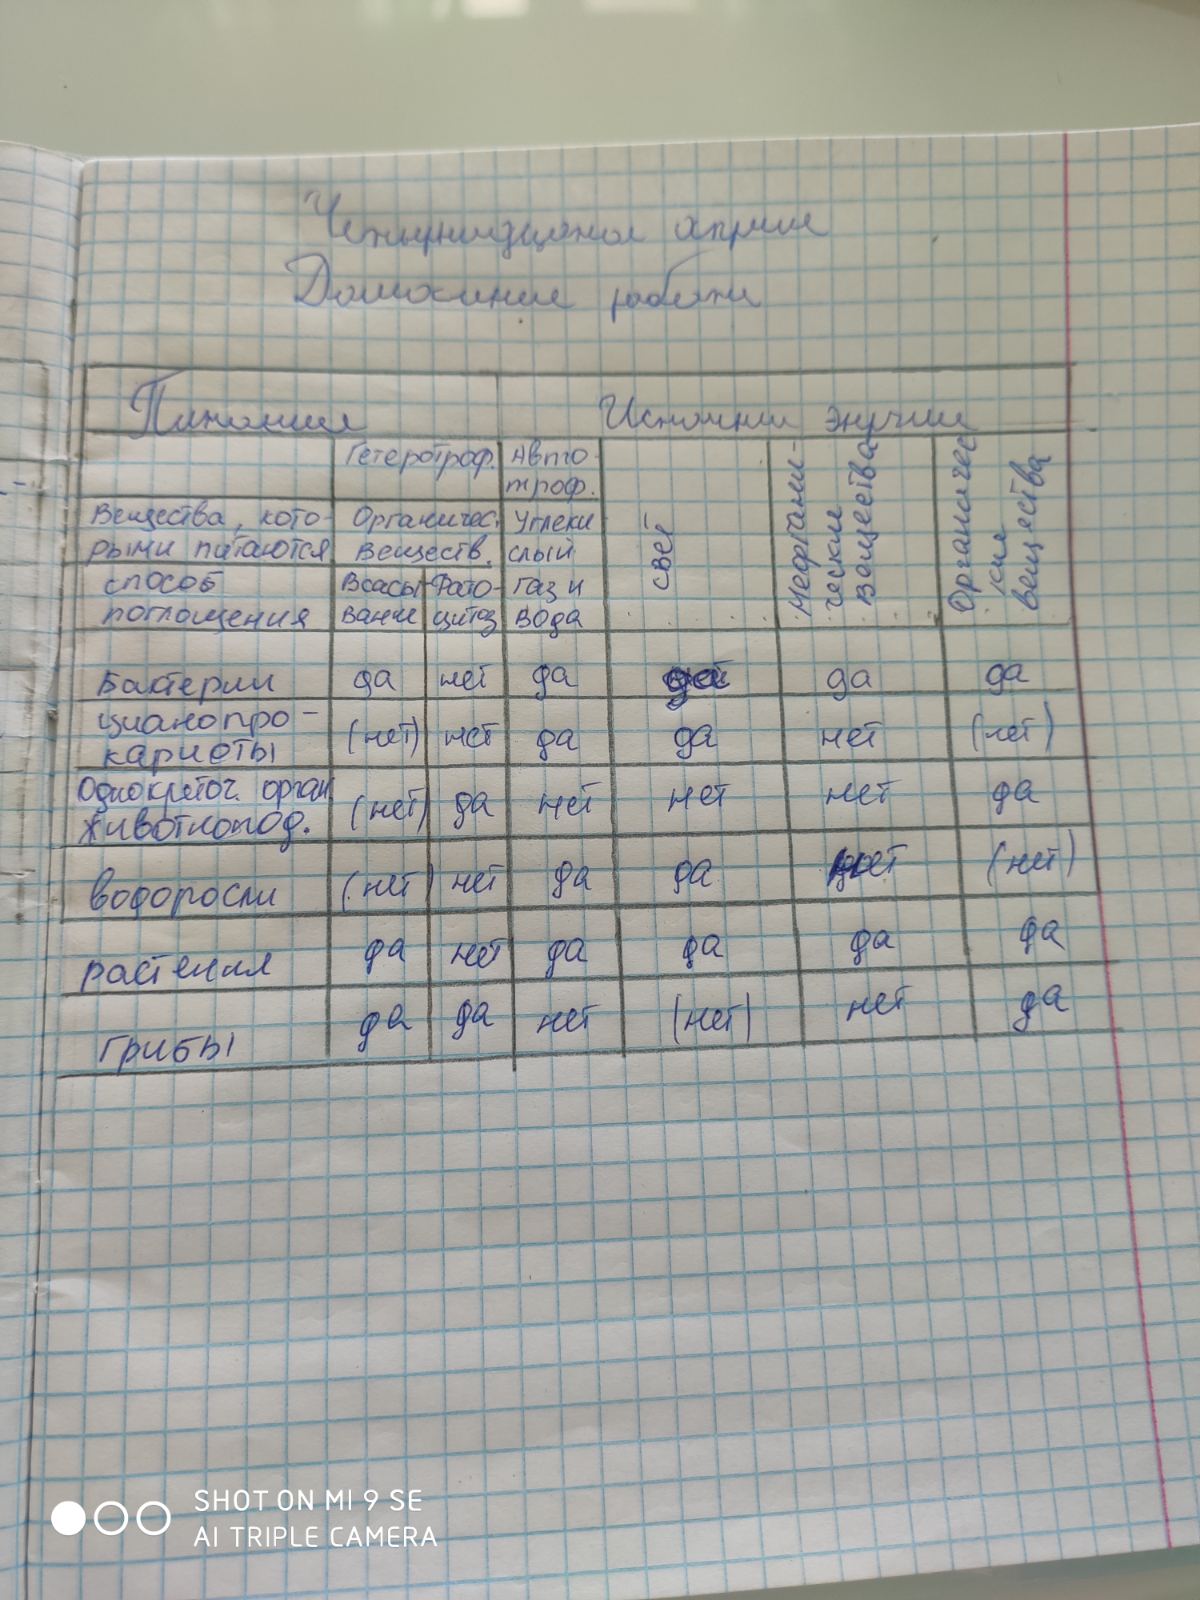 Четырнадцатое апреля
Домашняя работа
Питание Источник энергии
Гетеротроф. Авто-
троф.
Вещества, кото-
рыми питаются
Органичес.
Веществ.
Углеки
слый
газ и
вода
способ
поглощения
Всасы
вание
Фаго-
цитоз
свет
Неоргани-
ческие
Вещества
Органичес
кие
вещества
Бактерии да нет да да да
цианопро-
кариоты (нет) нет да да нет (нет)
Одноклеточ. орган
животнопод. (нет) да нет нет нет да
водоросли (нет) нет да да нет (нет)
растения да нет да да да да
грибы да да нет (нет) нет да
SHOT ON MI 9 SE
AI TRIPLE CAMERA